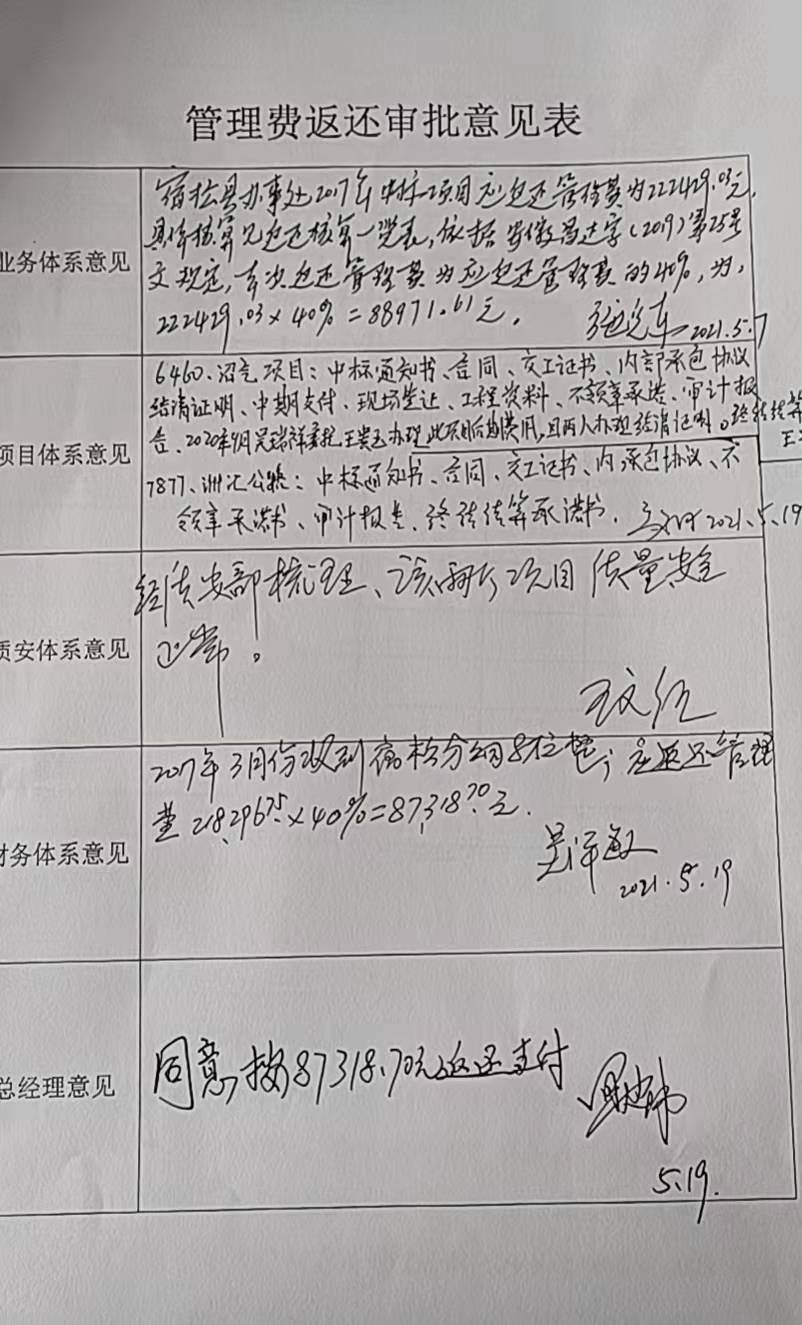 管理费返还审批意见表
业务体系意见
宿松县办事处2017年中标项目应返还管理费为222429.03元,
具体核算见返还核算一览表,依据安徽昌达字(2019)第25号
文规定,本次返还管理费为应返还管理费的40%,为,
222429.03×40%=88971.61元.
2021.5.7
项目体系意见
6460、沼气项目:中标通知书、合同、交工证书、内部承包协议
结清证明、中期支付、现场签证、工程资料、不领章承诺、审计报
告、2020年9月吴瑞祥委托王贵玉办理此项目后期费用,且两人办理结清证明。终结结算
7877、洲汇公路:中标通知书、合同、交工证书、内承包协议、不
领章承诺书、审计报告、终结结算承诺书.
2021.5.19
质安体系意见
经质安部梳理、该两个项目质量安全
正常。
财务体系意见
2017年3月份收到宿松分公司8位整;应返还管理
费218296.75×40%=87,318.70元.
2021.5.19
总经理意见
同意按87318.70元返还支付
5.19.